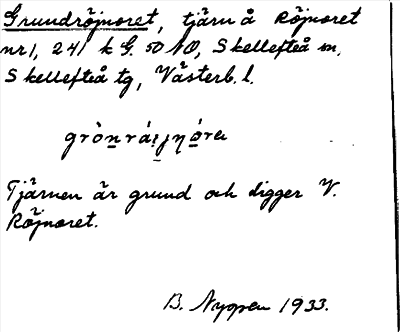 Grundröjnoret, tjärn å Röjnoret
nr 1, 241 k G. 50 NO, Skellefteå sn,
Skellefteå tg, Västerb. l.
Tjärnen är grund och ligger V.
Röjnoret.
B. Nyppen 1933.